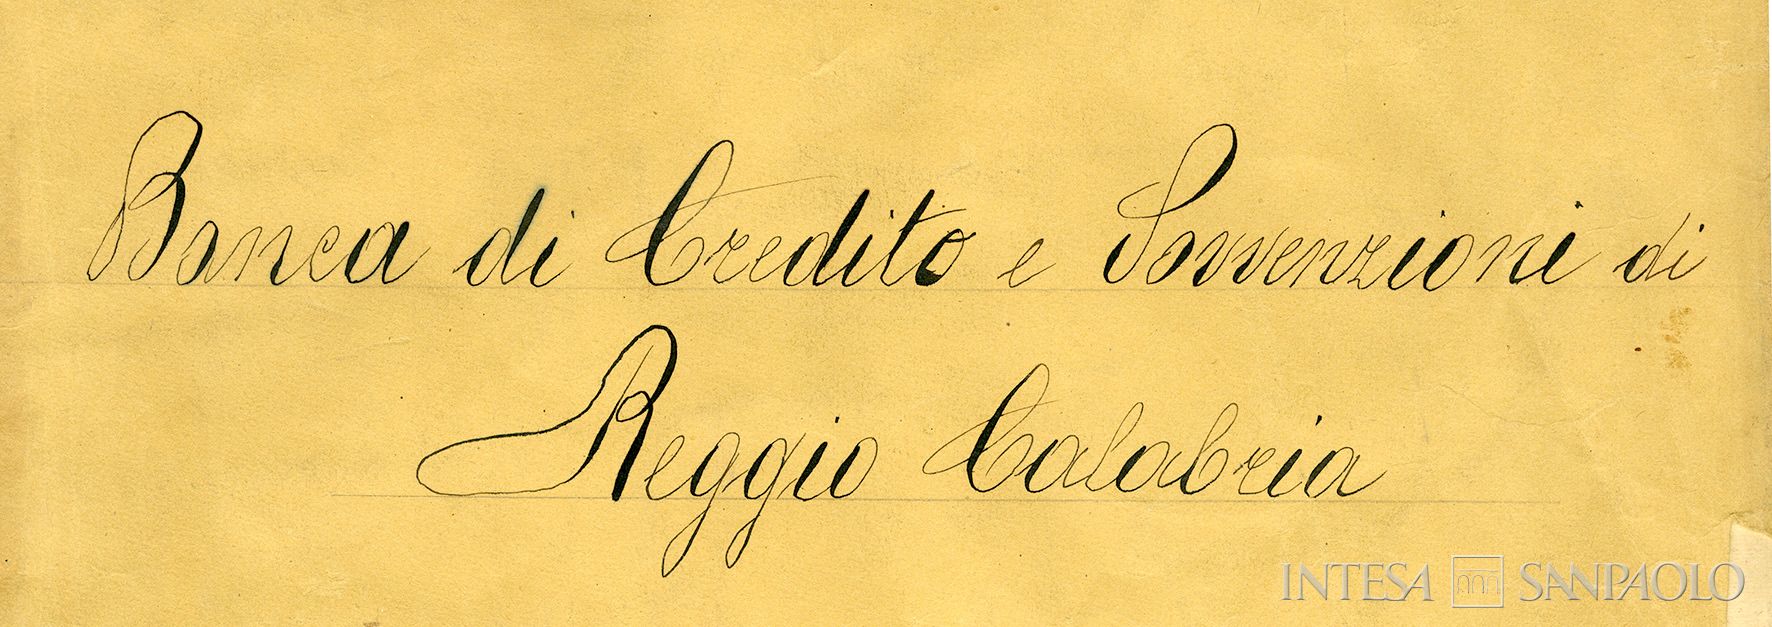 Banca di Credito e Sovvenzioni di
Reggio Calabria
INTESA SANPAOLO